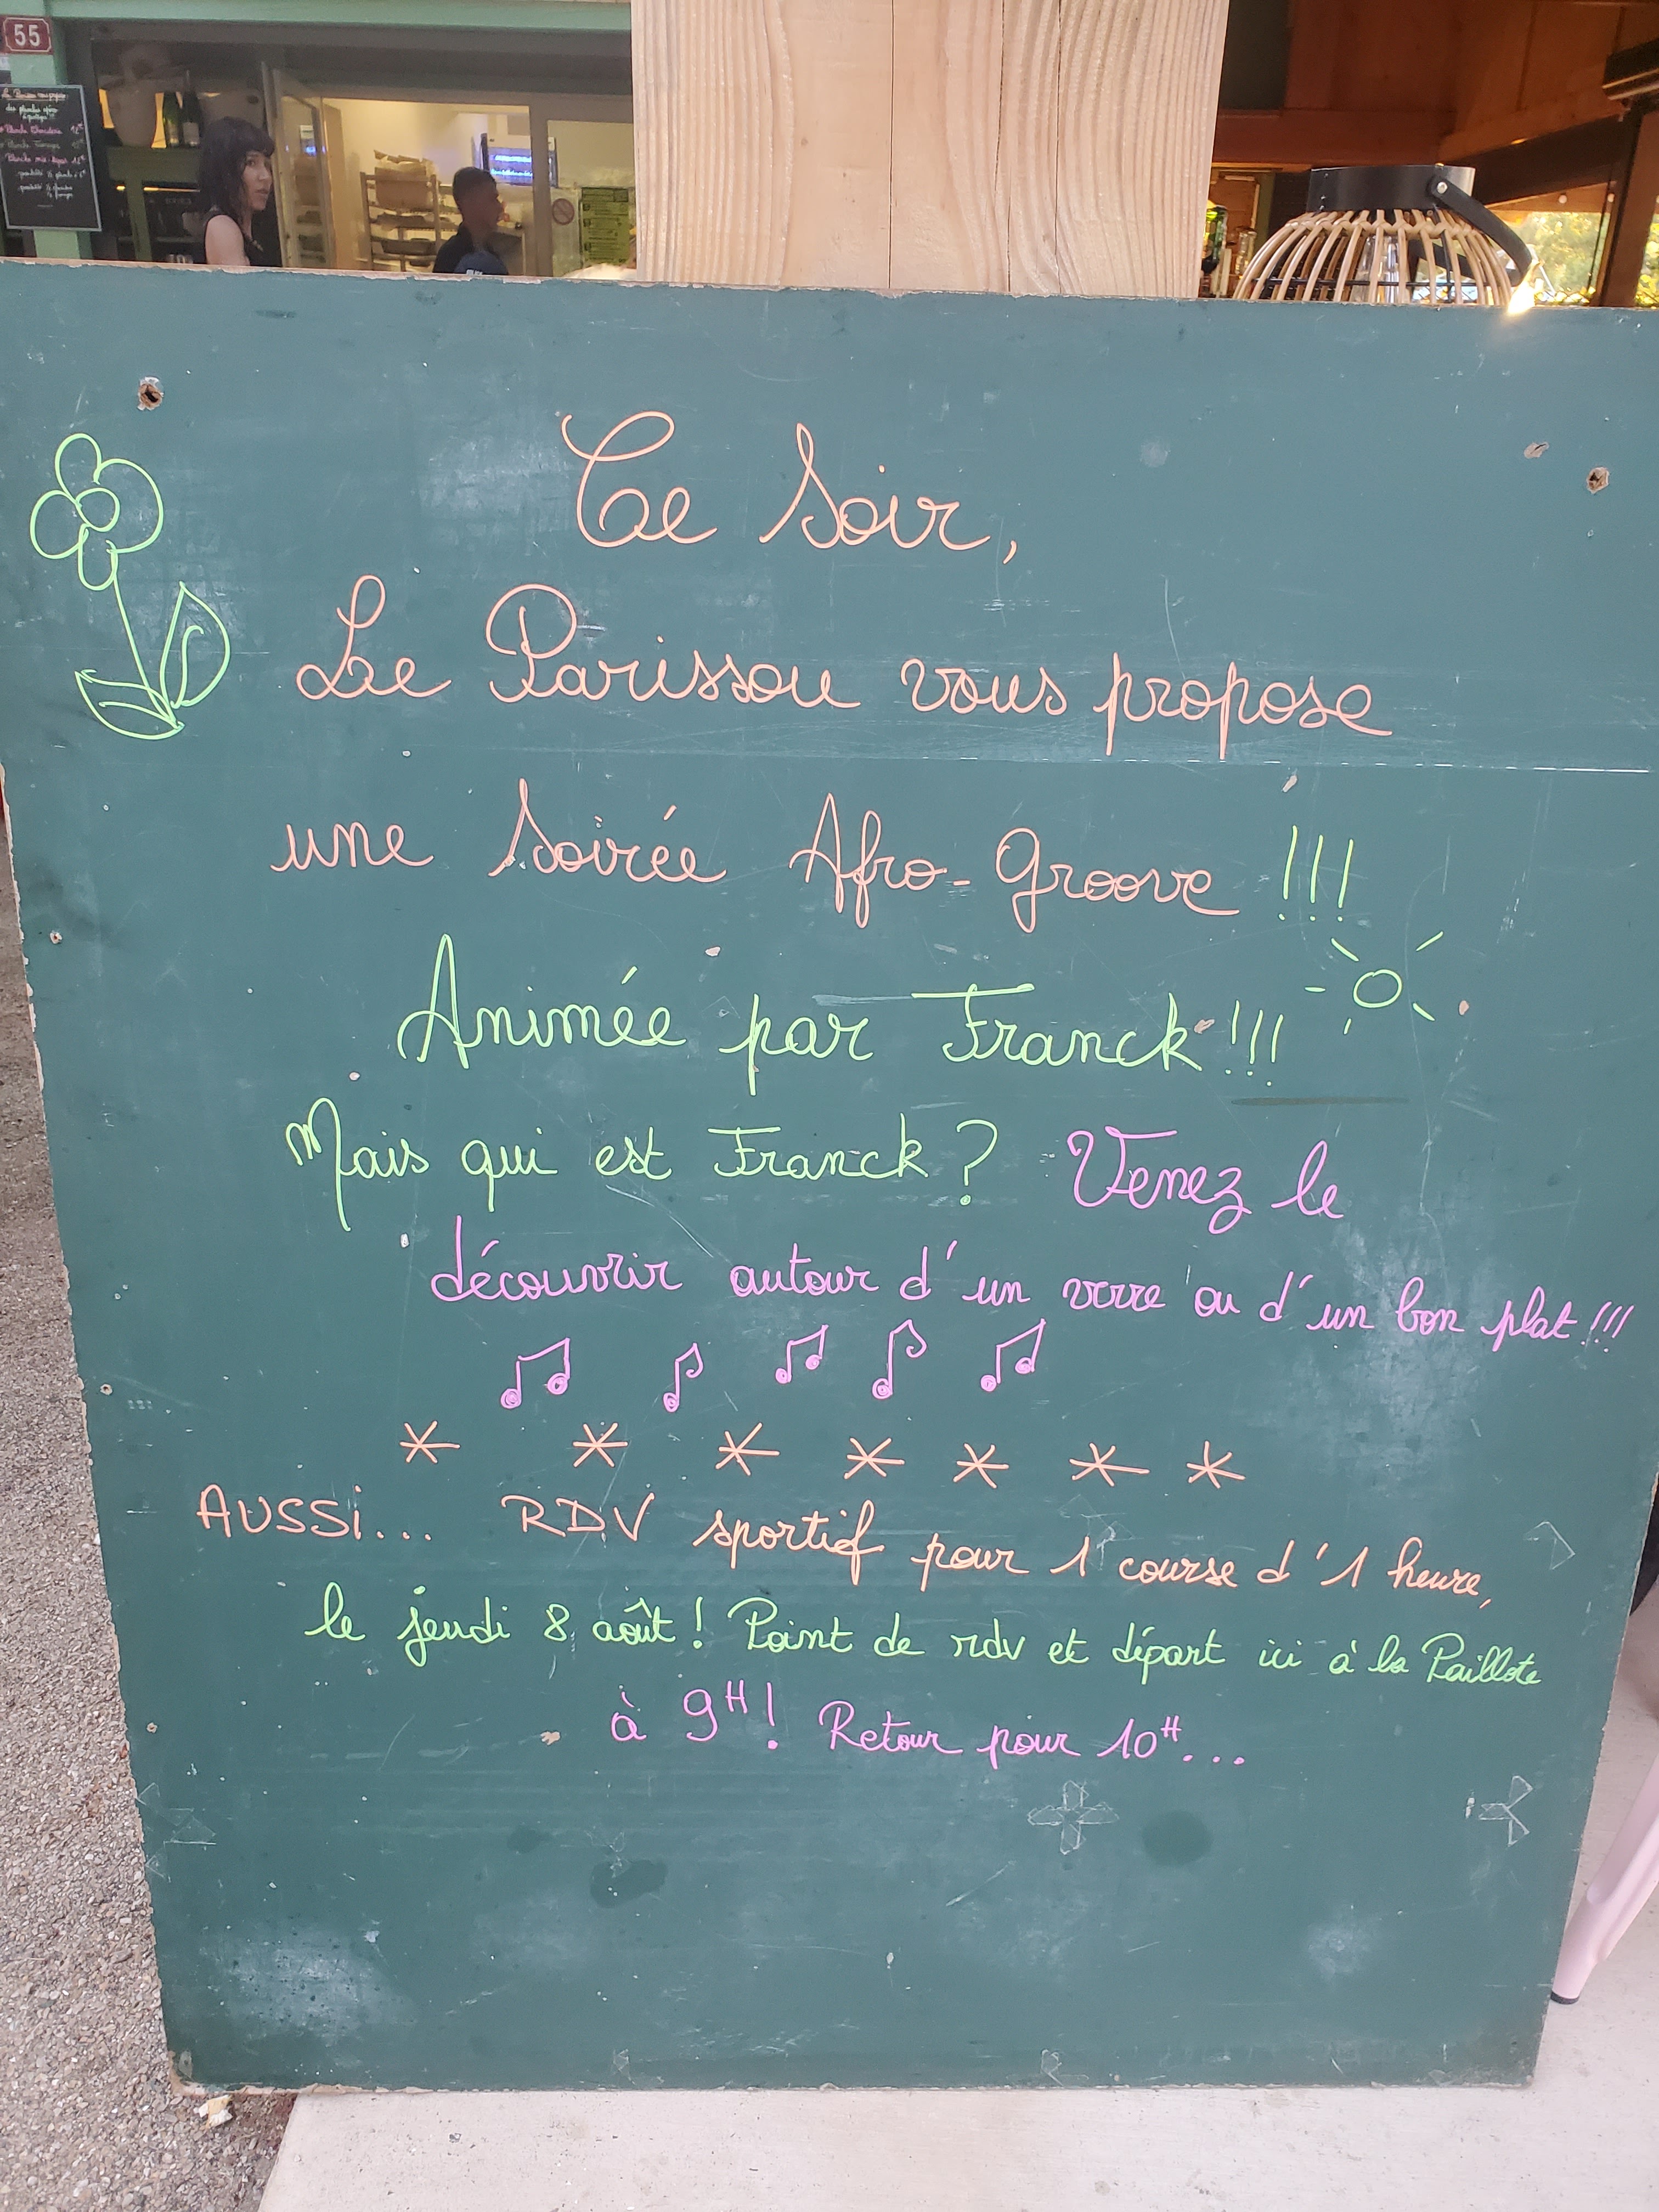 55
Ce soir,
Le Parissou vous propose
une soirée Afro-Groove !!!
Animée par Franck !!!
Mais qui est Franck ? Venez le
découvrir autour d'un verre ou d'un bon plat !!!
AUSSi... RDV sportif pour 1 course d'1 heure,
le jeudi 8 août ! Point de rdv et départ ici à la Paillote
à 9H ! Retour pour 10H...